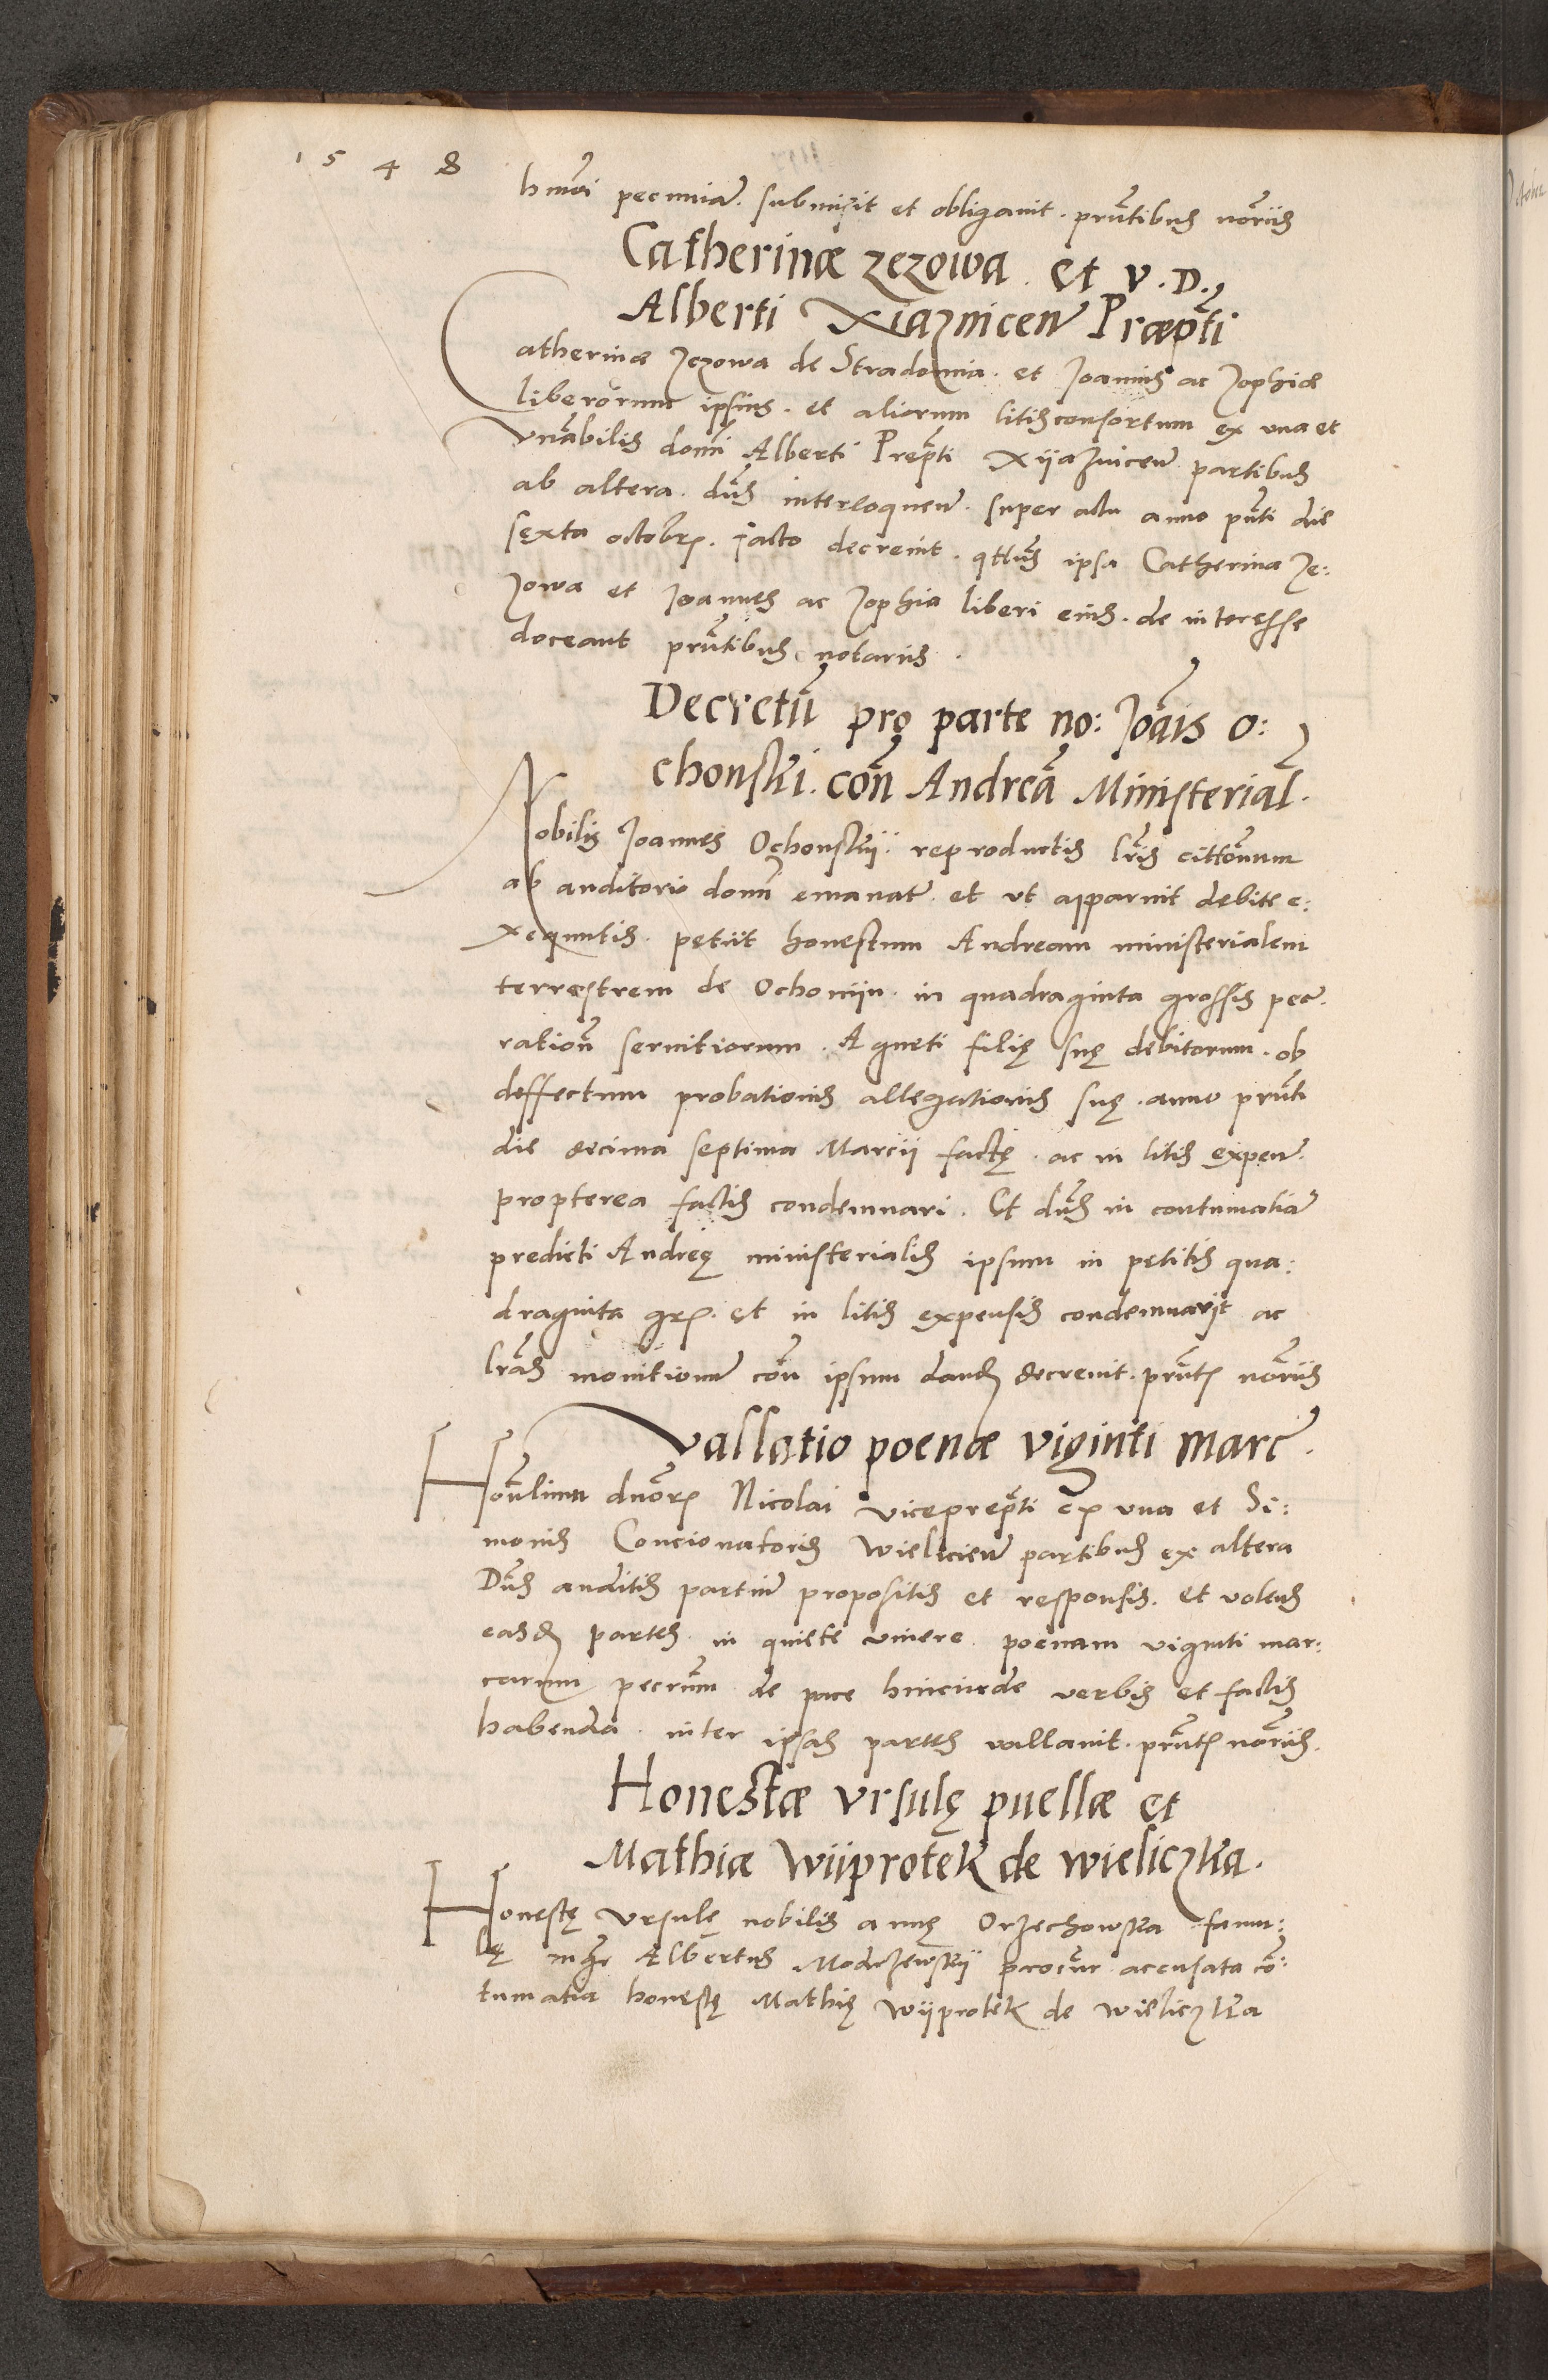 1548
hmõi pecuniã. submisit et obligauit. pñtibus nõriis
Catherinæ zezowa. et v. D.
Alberti Xiąznicen̄ Præpti
Catherinæ Zezowa de Stradomia. et Joannis ac Zophiæ
liberorum ipsius. et aliorum litisconsortum ex vna et
vnãbilis domi Alberti Prepti Xijaznicen̄ partibus
ab altera. dñs interloquen̄. super actu anno pñti die
sexta octobr. facto decreuit. qttus ipsa Catherina Ze:
zowa et Joannes ac Zophia liberi eius. de interesse
doceant pñtibus notariis.
Decretũ pro parte no: Joãis O:
chonski. con̄ Andreã Ministerial.
Nobilis Joannes Ochonskij. reproductis lr̃is cittõnum
ab auditorio domi emanat̃. et vt apparuit debite e:
xequutis. petiit honestum Andream ministerialem
terrestrem de Ochonijn. in quadraginta grossis pec̃.
ration̄ seruitiorum. Agneti filię suę debitorum. ob
deffectum probationis allegationis suę. anno pñti
die decima septima Marcii factę. ac in litis expen̄.
propterea factis condemnari. Et dñs in contumatiã
predicti Andreę ministerialis ipsum in petitis qua:
draginta gr. et in litis expensis condemnauit ac
lr̃as monitionũ con̄ ipsum dand decreuit. pñt nõriis
Vallatio poenæ viginti marc̃.
Honlium dnõr Nicolai viceprepti ex vna et Si:
monis Concionatoris Wielicien̄ partibus ex altera
Dñs auditis partiũ propositis et responsis. et volens
easd partes in quiete viuere. poenam viginti mar:
carum pecũm de pace hincinde verbis et factis
habenda. inter ipsas partes vallauit. pñt nõriis.
Honestæ vrsulę puellæ et
Mathiæ Wijprotek de wieliczka.
Honestę Vrsulę nobilis annę Orzechowska famu:
lę mgr Albertus Modrzewskij procũr. acusata cõ:
tumatia honestę Mathię Wijprotek de Wieliczka